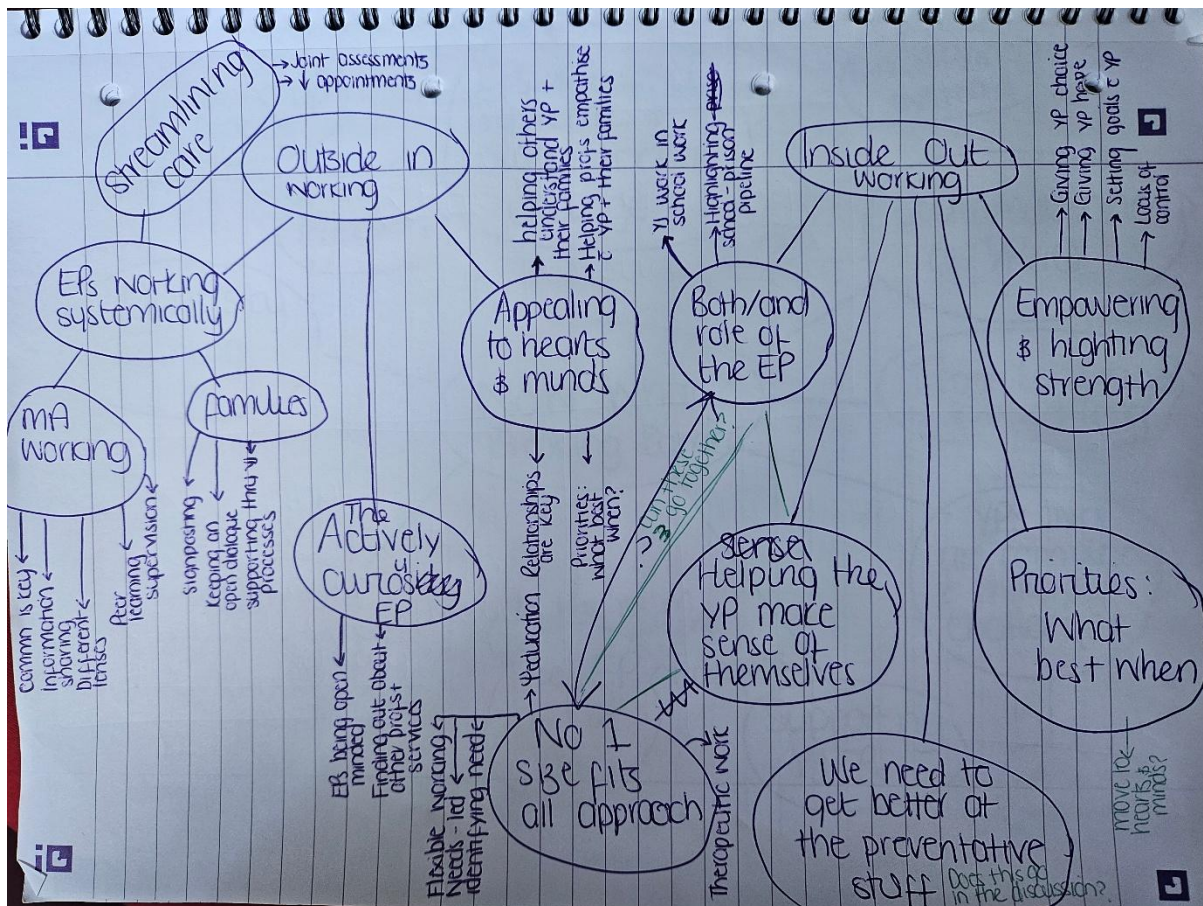 Streamlining
care
→ Joint assessments
→ ↓ appointments
Outside in
working
EPs working
systemically
MA
working
Commn is key
Information
sharing
Different
lenses
Peer
learning
supervision
families
signposting
keeping an
open dialogue
supporting thru
processes
The
Actively
EP
EPs being open
minded
Finding out about
other profs +
services
Appealing
to hearts
& minds
helping others
understand YP +
their families
Helping profs empathise
c̄ YP + their families
Relationships
are key
Priorities:
What best
when?
Inside Out
working
Both/and
role of
the EP
YJ work in
school work
Highlighting
school-prison
pipeline
Empowering
& highting
strength
→ Giving YP choice
→ Giving YP hope
→ Setting goals c̄ YP
→ Locus of
control
Can these
go together?
Helping the
YP make
sense of
themselves
Priorities:
What
best when
move to
hearts &
minds?
No 1
size fits
all approach
Flexible working
Needs-led
identifying need
Ψeducation
Therapeutic work
We need to
get better at
the preventative
stuff
Does this go
in the discussion?